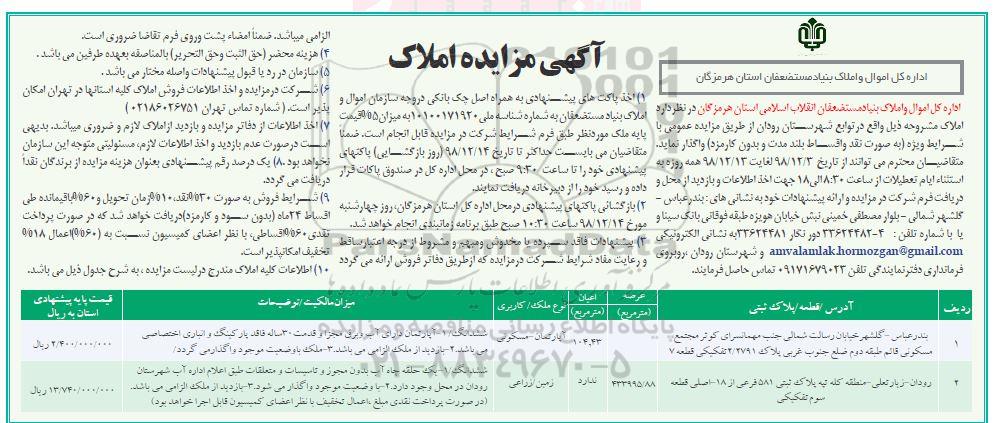 آگهی مزایده املاک
اداره کل اموال واملاک بنیادمستضعفان استان هرمزگان
اداره کل اموال واملاک بنیادمستضعفان انقلاب اسلامی استان هرمزگان در نظر دارد
املاک مشروحه ذیل واقع در توابع شهرستان رودان از طریق مزایده عمومی با
شرایط ویژه (به صورت نقد واقساط بلند مدت و بدون کارمزد) واگذار نماید.
متقاضیان محترم می توانند از تاریخ ۹۸/۱۲/۳ لغایت ۹۸/۱۲/۱۳ همه روزه به
استثناء ایام تعطیلات از ساعت ۸:۳۰ الی۱۸ جهت اخذ اطلاعات و بازدید از محل و
دریافت فرم شرکت در مزایده و ارائه پیشنهادات خود به نشانی های : بندرعباس -
گلشهر شمالی - بلوار مصطفی خمینی نبش خیابان هویزه طبقه فوقانی بانک سینا و
یا با شماره تلفن : ۴-۳۳۶۲۴۴۸۲ دور نگار ۳۳۶۲۴۴۸۱ به نشانی الکترونیکی
amvalamlak.hormozgan@gmail.com و شهرستان رودان ،روبروی
فرمانداری دفترنمایندگی تلفن ۰۹۱۷۱۶۷۹۰۲۳ تماس حاصل فرمایند.
۱) اخذ پاکت های پیشنهادی به همراه اصل چک بانکی دروجه سازمان اموال و
املاک بنیاد مستضعفان به شماره شناسه ملی ۱۰۱۰۰۱۷۱۹۲۰ به میزان۵٪قیمت
پایه ملک موردنظر طبق فرم شرایط شرکت در مزایده قابل انجام است. ضمنا
متقاضیان می بایست حداکثر تا تاریخ ۹۸/۱۲/۱۴ (روز بازگشایی) پاکتهای
پیشنهادی خود را تا ساعت ۹:۳۰ صبح ، در محل اداره کل در صندوق پاکات قرار
داده و رسید خود را از دبیرخانه دریافت نمایند.
۲) بازگشائی پاکتهای پیشنهادی درمحل اداره کل استان هرمزگان، روز چهارشنبه
مورخ ۹۸/۱۲/۱۴ ساعت ۱۰:۳۰ صبح طبق برنامه زمانبندی انجام خواهد شد.
۳) پیشنهادات فاقد سپرده یا مخدوش ومبهم و مشروط از درجه اعتبارساقط
و رعایت مفاد شرایط شرکت درمزایده که ازطریق دفاتر فروش ارائه می گردد
الزامی میباشد. ضمناً امضاء پشت وروی فرم تقاضا ضروری است.
۴) هزینه محضر (حق الثبت وحق التحریر) بالمناصفه بعهده طرفین می باشد .
۵) سازمان در رد یا قبول پیشنهادات واصله مختار می باشد .
۶) شرکت درمزایده و اخذ اطلاعات فروش املاک کلیه استانها در تهران امکان
پذیر است. ( شماره تماس تهران ۰۲۱۸۶۰۲۶۷۵۱ )
۷) اخذ اطلاعات از دفاتر مزایده و بازدید ازاملاک لازم و ضروری میباشد. بدیهی
است درصورت عدم بازدید و اخذ اطلاعات لازم، مسئولیتی متوجه این سازمان
نخواهد بود .۸) یک درصد رقم پیشنهادی بعنوان هزینه مزایده از برندگان نقداً
دریافت می گردد.
۹) شرایط فروش به صورت ۳۰٪نقد،۱۰٪زمان تحویل و۶۰٪باقیمانده طی
اقساط ۲۴ماه (بدون سود و کارمزد)دریافت خواهد شد که در صورت پرداخت
نقدی۶۰٪اقساطی، با نظر اعضای کمیسیون نسبت به (۶۰٪)اعمال ۱۸٪
تخفیف امکانپذیر است.
۱۰) اطلاعات کلیه املاک مندرج درلیست مزایده ، به شرح جدول ذیل می باشد.
ردیف آدرس /قطعه/پلاک ثبتی عرصه (مترمربع) اعیان (مترمربع) نوع ملک/ کاربری میزان مالکیت /توضیحات قیمت پایه پیشنهادی استان به ریال
۱ بندرعباس -گلشهرخیابان رسالت شمالی جنب مهمانسرای کوثر مجتمع ۱۰۴,۴۳ آپارتمان-مسکونی ششدانگ/ ۱-آپارتمان دارای آب وبرق مجزا و قدمت۳۰ساله فاقد پارکینگ و انباری اختصاصی ۲/۴۰۰/۰۰۰/۰۰۰ ریال
مسکونی قائم طبقه دوم ضلع جنوب غربی پلاک ۲/۲۷۹۱تفکیکی قطعه ۷ می باشد.۲-بازدید از ملک الزامی می باشد.۳-ملک باوضعیت موجود واگذارمی گردد/
۲ رودان-زیارتعلی-منطقه کله تپه پلاک ثبتی ۵۸۱ فرعی از ۱۸-اصلی قطعه ۴۳۳۹۹۵/۸۸ ندارد زمین/زراعی ششدانگ/۱-یک حلقه چاه آب بدون مجوز و تاسیسات و متعلقات طبق اعلام اداره آب شهرستان ۱۳/۷۴۰/۰۰۰/۰۰۰ ریال
سوم تفکیکی رودان در محل وجود دارد.۲-با وضعیت موجود واگذار می شود.۳-بازدید از ملک الزامی می باشد.
(در صورت پرداخت نقدی مبلغ ،اعمال تخفیف با نظر اعضای کمیسیون قابل اجرا خواهد بود)